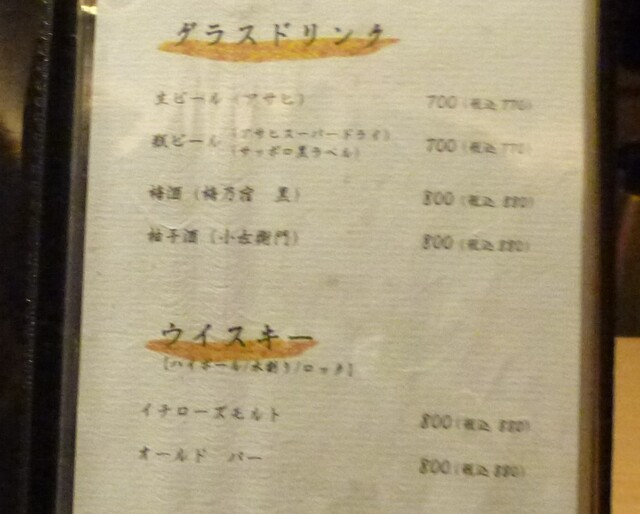 グラスドリンク
生ビール（アサヒ） 700（税込 770）
瓶ビール（アサヒスーパードライ）（サッポロ黒ラベル） 700（税込 770）
梅酒（梅乃宿 黒） 800（税込 880）
柚子酒（小左衛門） 800（税込 880）
ウイスキー
［ハイボール/水割り/ロック］
イチローズモルト 800（税込 880）
オールド パー 800（税込 880）